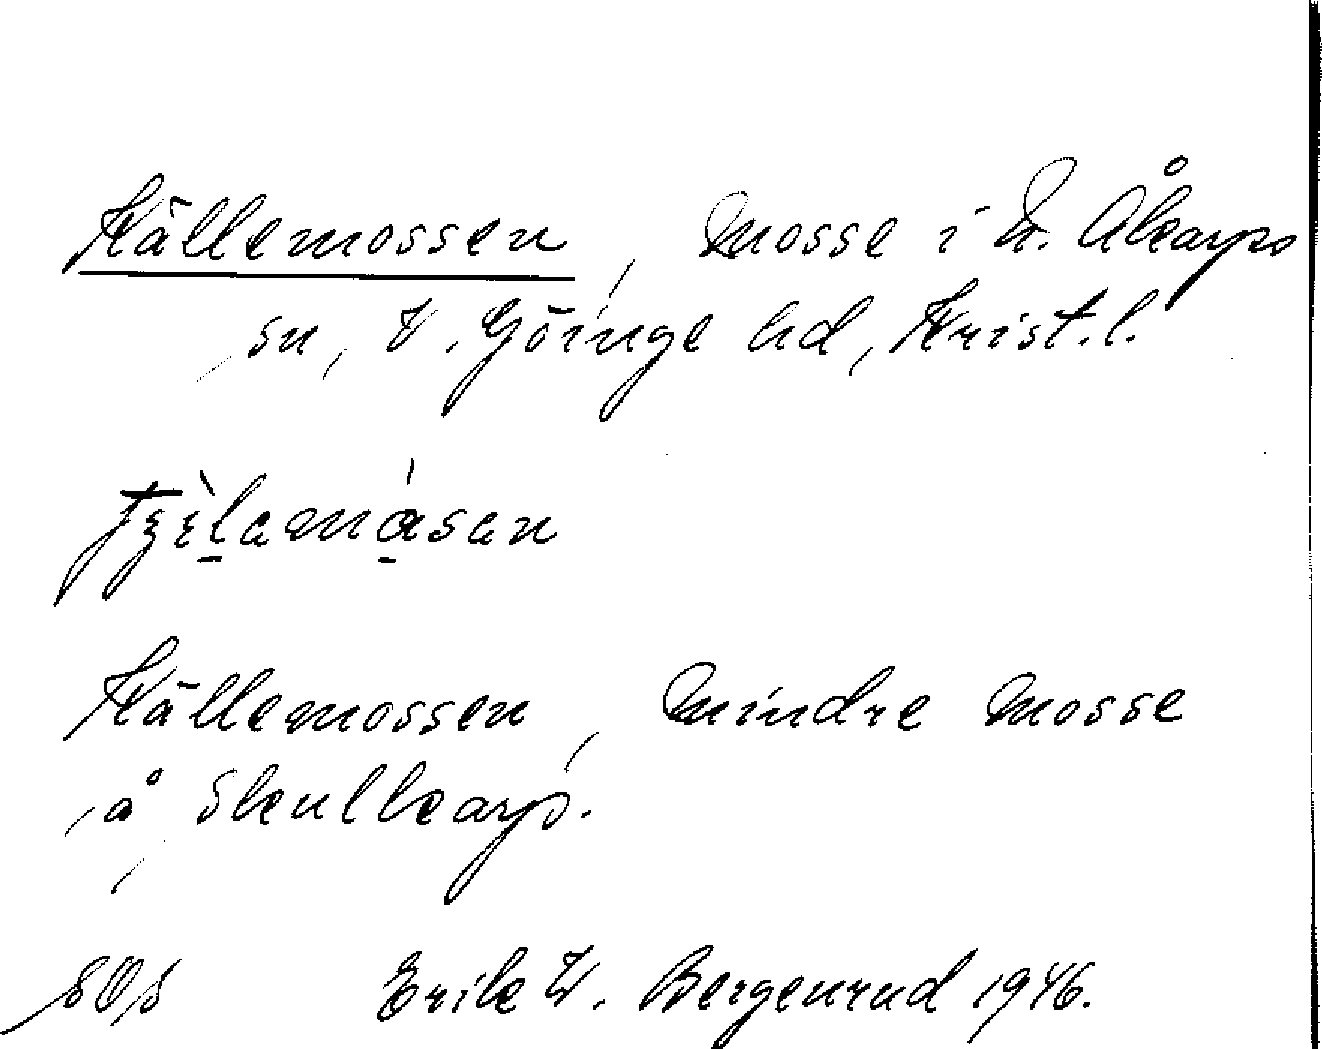 Källemossen, Mosse i N. Åkarps
sn, V. Göinge hd, Krist.l.
Källemossen, Mindre mosse
å Skulkarp.
Erik W. Bergenrud 1946.